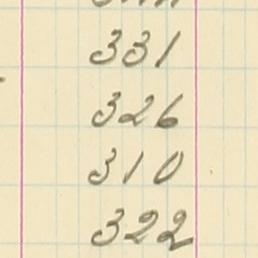 331
326
310
322